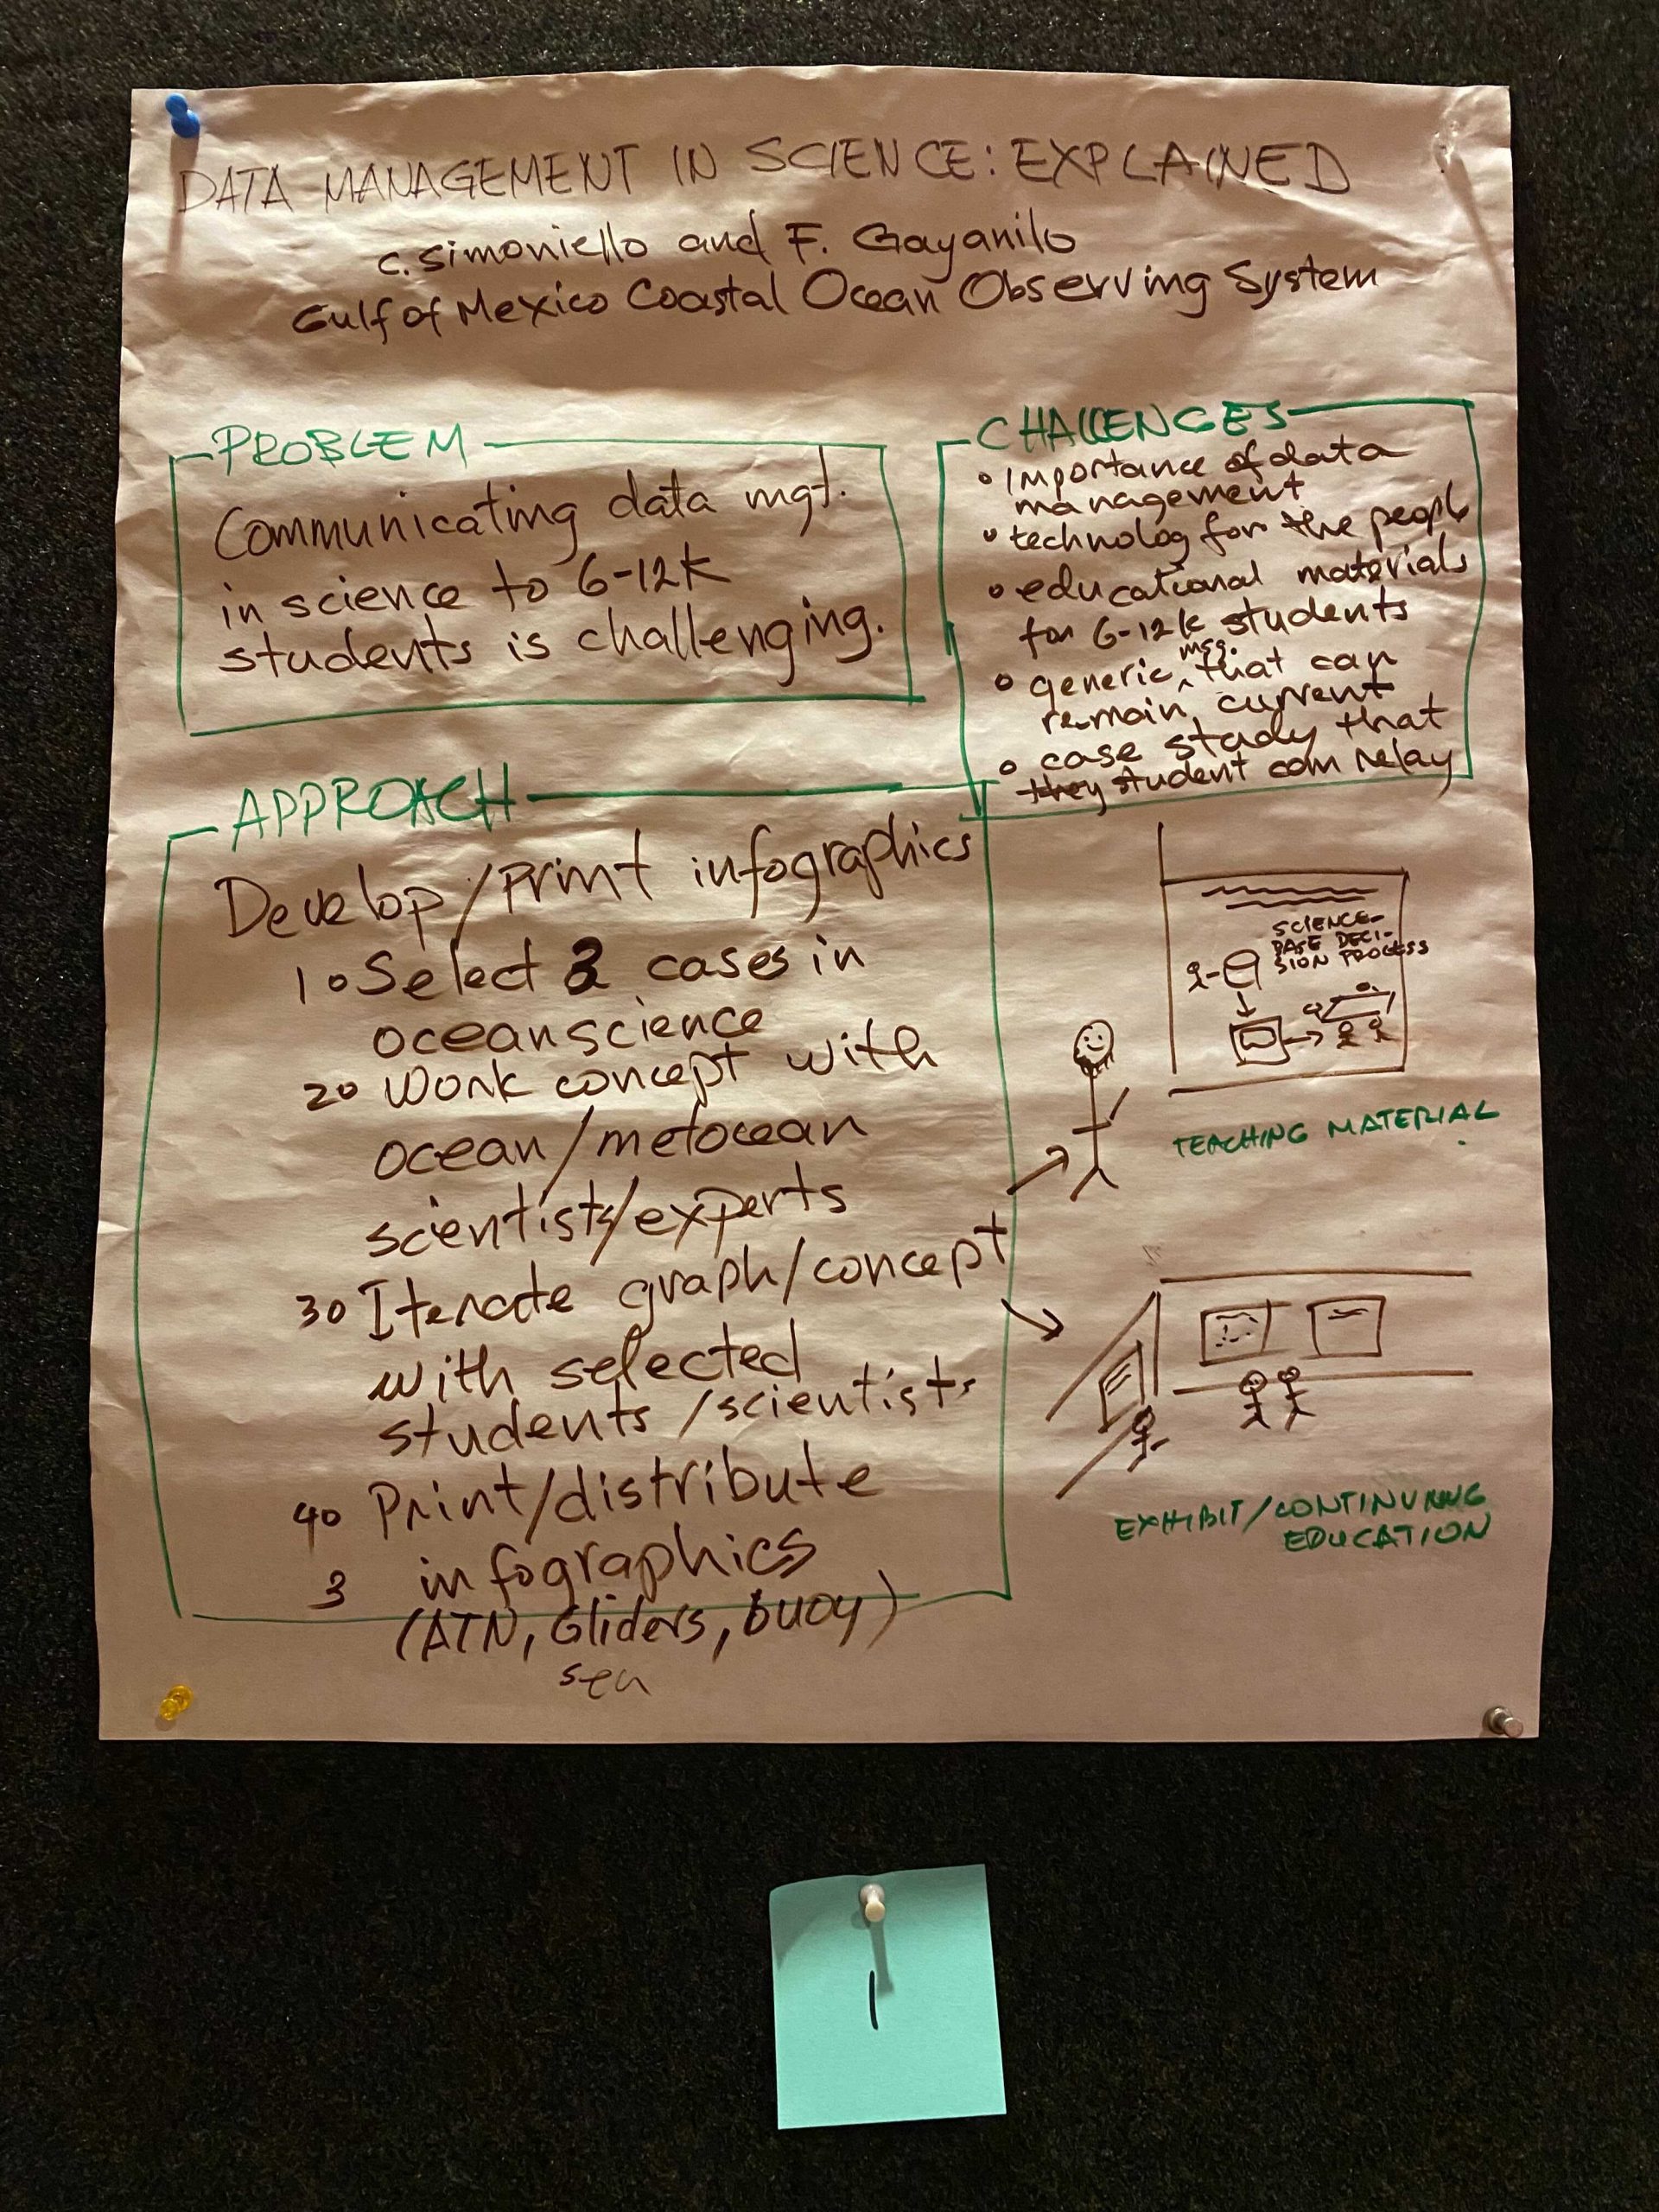 DATA MANAGEMENT IN SCIENCE: EXPLAINED
C. Simoniello and F. Gayanilo
Gulf of Mexico Coastal Ocean Observing System
PROBLEM
Communicating data mgt.
in science to 6-12K
students is challenging.
CHALLENGES
• importance of data
management
• technolog for the people
• educational materials
for 6-12k students
msg.
• generic ^ that can
remain current
• case study that
they student can relay
APPROACH
Develop/print infographics
1. Select 3 cases in
ocean science
2. Work concept with
ocean/metocean
scientists/experts
3. Iterate graph/concept
with selected
students/scientists
4. Print/distribute
3 infographics
(ATN, Gliders, buoy)
sea
SCIENCE-
BASE DECI-
SION PROCESS
TEACHING MATERIAL
EXHIBIT/CONTINUING
EDUCATION
1